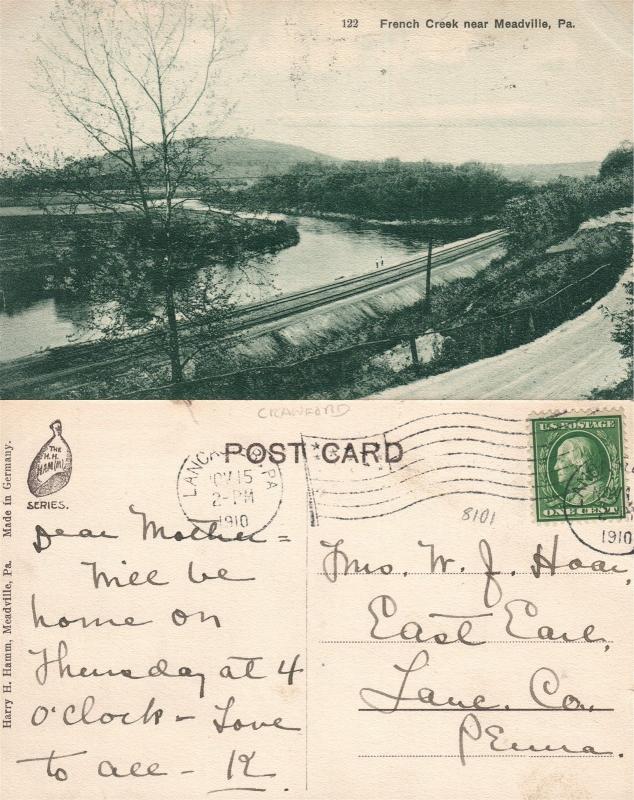 122 French Creek near Meadville, Pa.
CRAWFORD
POST CARD
THE
H.H.
HAMM
SERIES.
Harry H. Hamm, Meadville, Pa. Made in Germany.
LANCA PA
NOV 15
2-PM
1910
U.S. POSTAGE
ONE CENT
1910
8101
Dear Mother =
Will be
home on
Thursday at 4
o'clock - Love
to all - K.
Mrs. W. J. Hoar,
East Earl,
Lanc. Co.,
Penna.